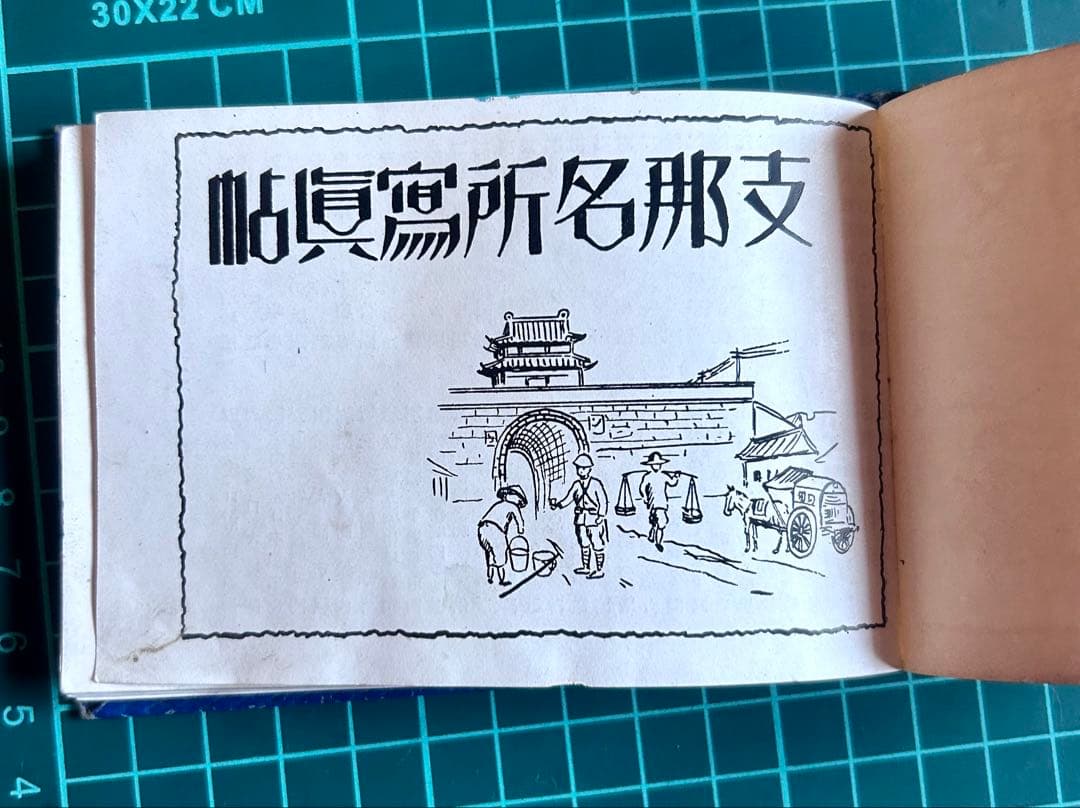 30X22 CM
支那名所寫眞帖
8
7
6
5
4